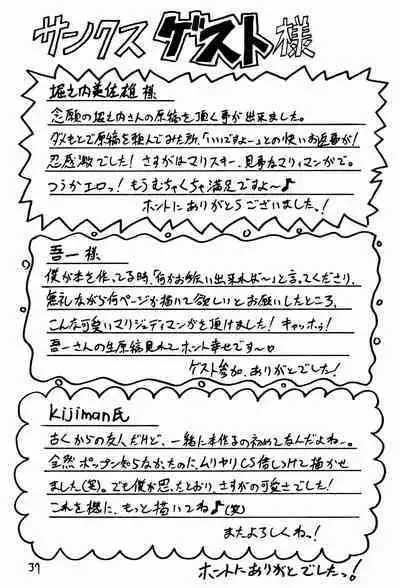 サンクス ゲスト 様
堀之内英佐雄 様
念願の堀之内さんの原稿を頂く事が出来ました。
ダメもとで原稿を頼んでみた所、「いいですよー」との快いお返事が!
忍感激でした! さすがはマリスキー、見事なマリィマンガで。
つうかエロッ! もうむちゃくちゃ満足ですよ〜♪
ホントにありがとうございましたっ!
吾一 様
僕が本を作ってる時、「何かお手伝い出来れば〜」と言ってくださり、
無礼ながら何ページか描いて欲しいとお願いしたところ、
こんな可愛いマリジュディマンガを頂けました! キャッホゥ!
吾一さんの生原稿見れてホント幸せです〜♡
ゲスト参加、ありがとでした!
Kijiman氏
古くからの友人だけど、一緒に本作るの初めてなんだよね〜。
全然ポップン知らなかったのに、ムリヤリCS借しつけて描かせ
ました(笑)。でも僕が思ったとおり、さすがの可愛さでした!
これを機に、もっと描いてね♪(笑)
またよろしくねっ!
37
ホントにありがとでしたっ!